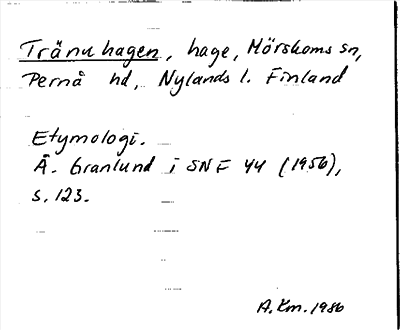 Tränuhagen, hage, Mörskoms sn,
Pernå hd, Nylands l. Finland
Etymologi.
Å. Granlund i SNF 44 (1956),
s. 123.
A.Km. 1986